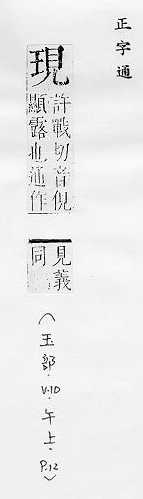 正字通
現
許戰切音俔
顯露也通作
見義
同
(玉部.V.10.午上.P.12)